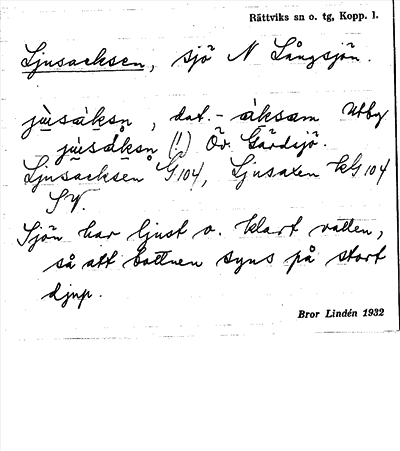 Rättviks sn o. tg, Kopp. l.
Ljusacksen, sjö N Långsjön.
jùsàksn, dat. - àksam Utby
jùsåksn (!) Öv. Gärdsjö.
Ljusacksen G104, Ljusaxen kG104
SV.
Sjön har ljust o. klart vatten,
så att bottnen syns på stort
djup.
Bror Lindén 1932